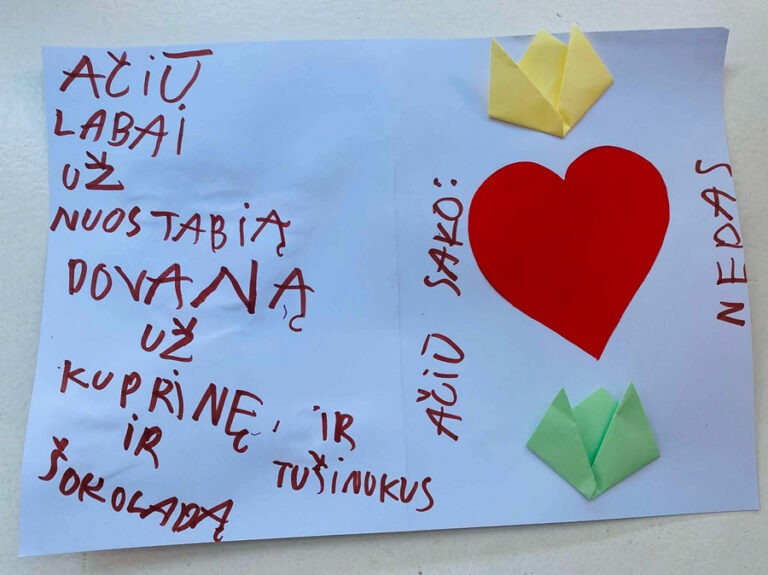 AČIŪ
LABAI
UŽ
NUOSTABIĄ
DOVANĄ
UŽ
KUPRINĘ,
IR
ŠOKOLADĄ
IR
TUŠINUKUS
AČIŪ SAKO:
NEDAS